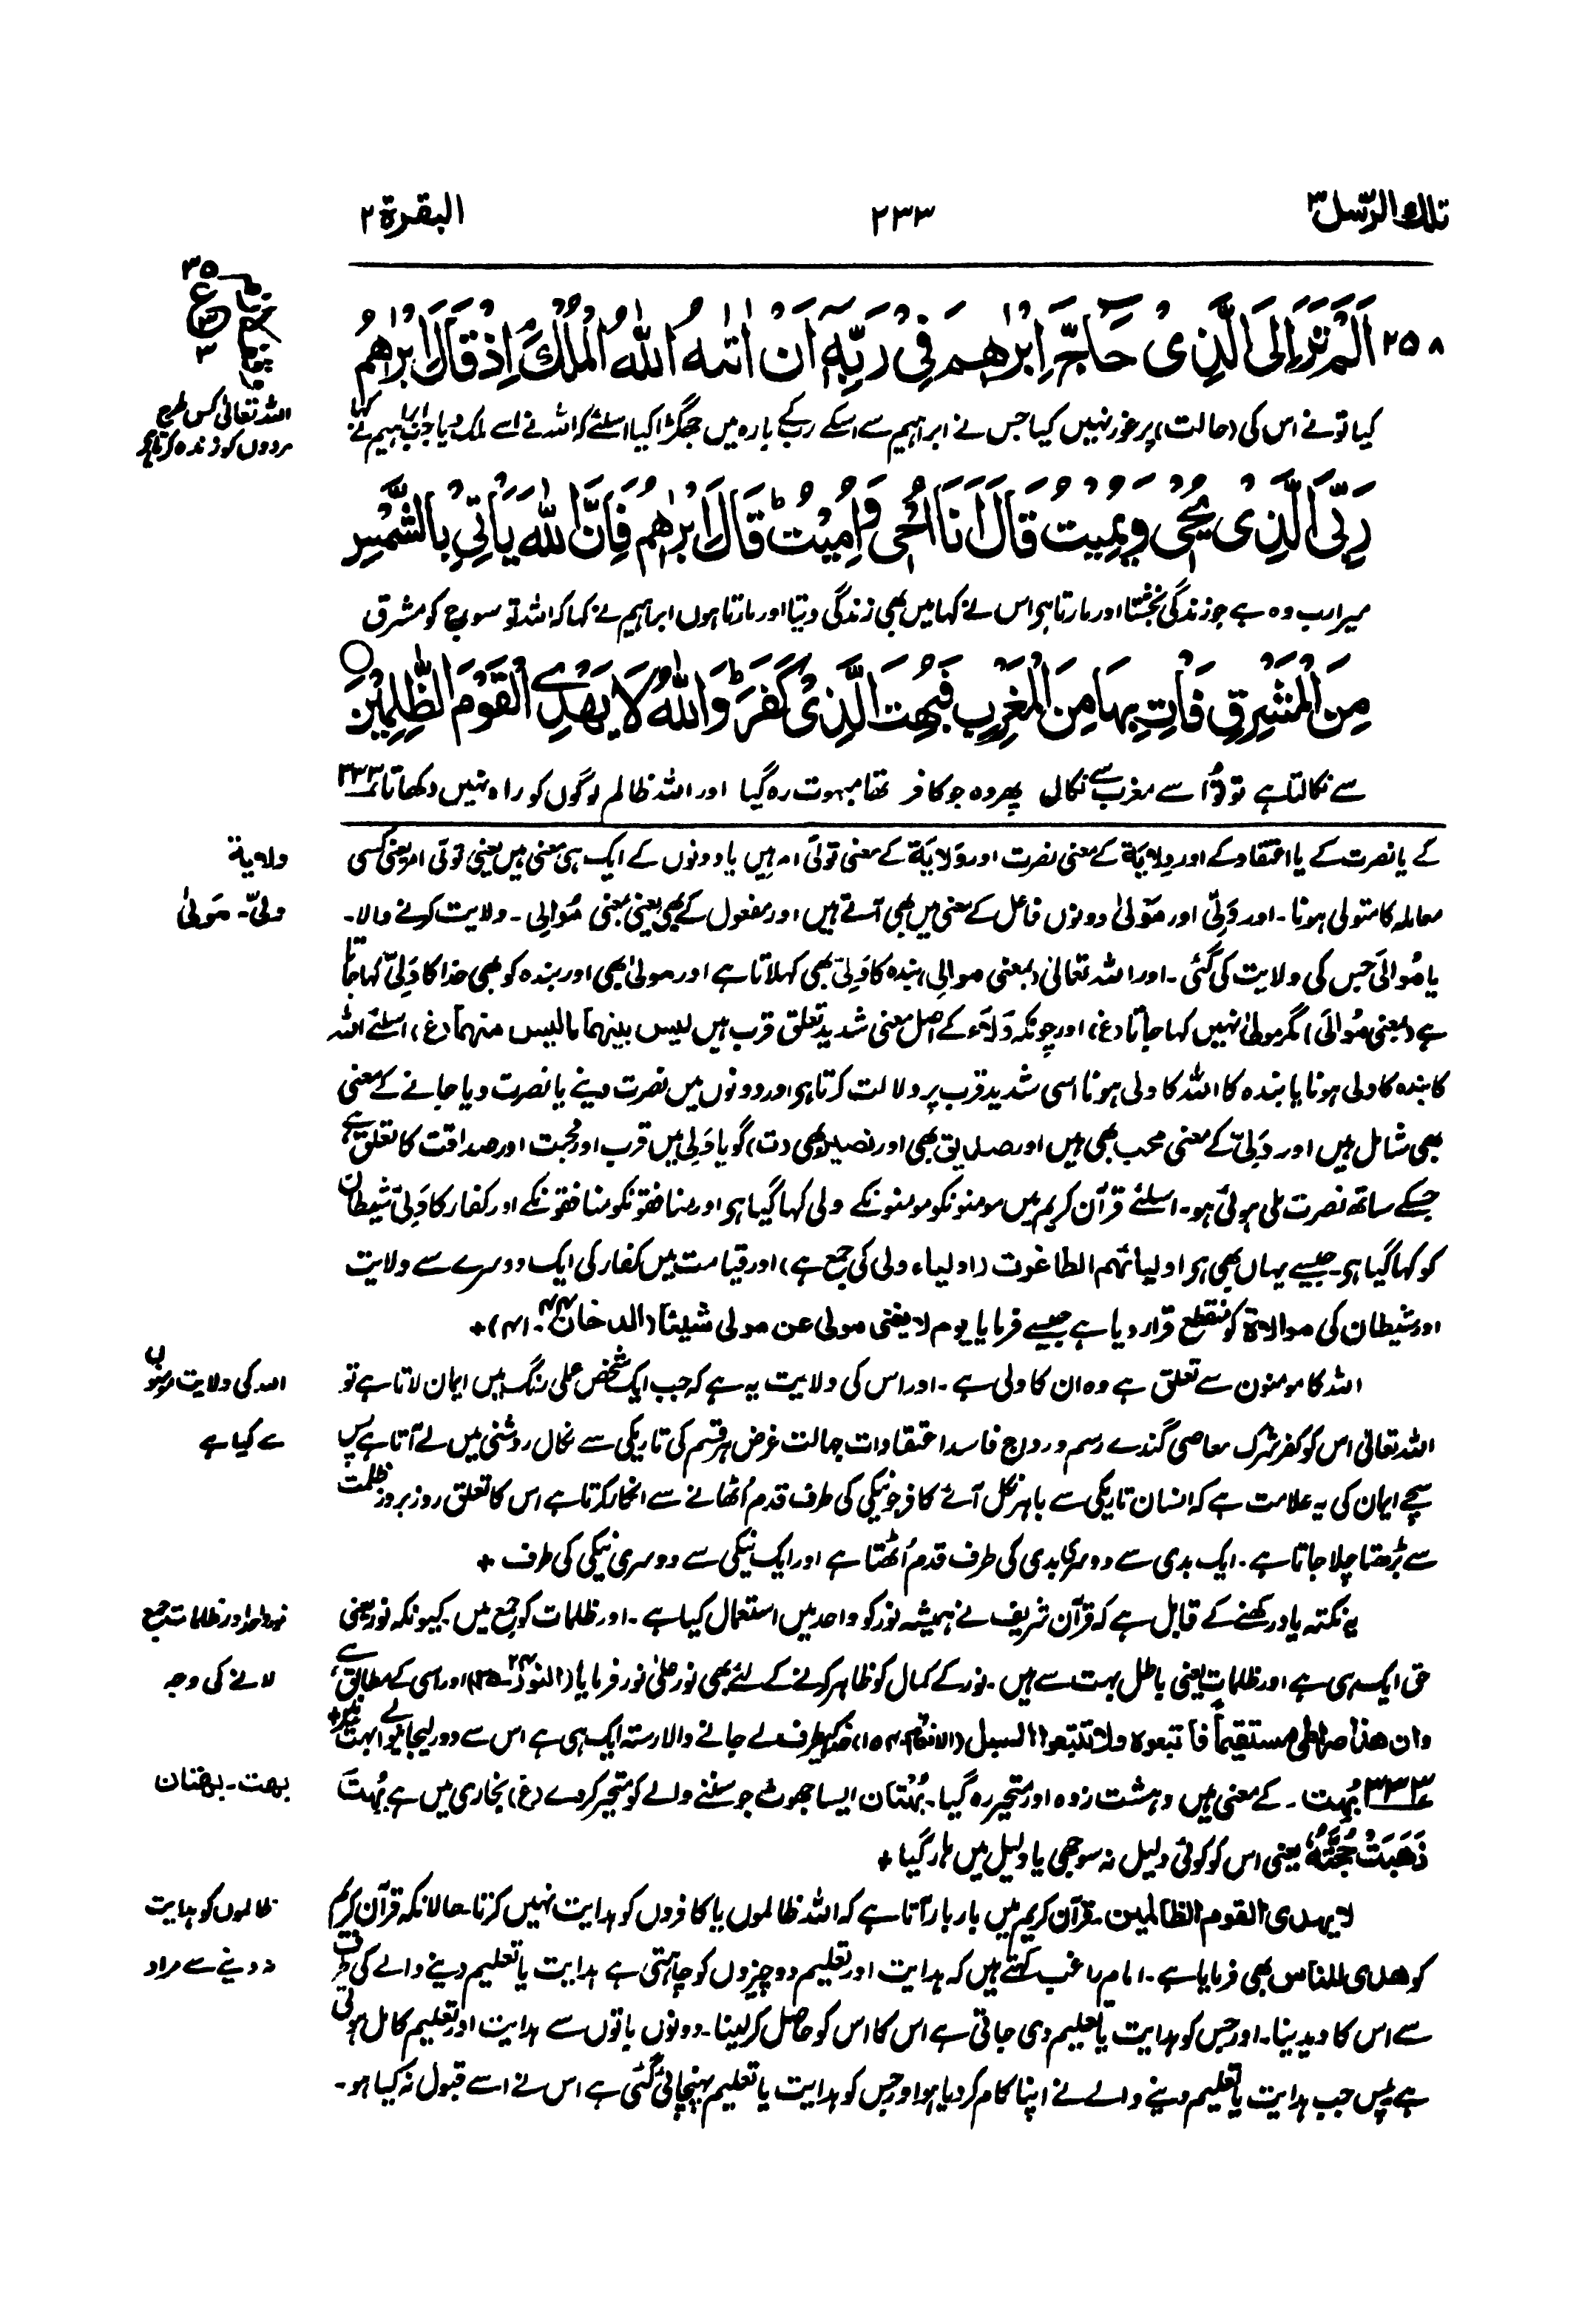 تلك الرّسل ۳
۲۳۳
البقرة ۲
۳۵
ع
۳
۳
۲۵۸ اَلَمْ تَرَ اِلَى الَّذِىْ حَآجَّ اِبْرٰهٖمَ فِىْ رَبِّهٖٓ اَنْ اٰتٰىهُ اللّٰهُ الْمُلْكَ اِذْ قَالَ اِبْرٰهٖمُ
کیا تونے اس کی (حالت) پر غور نہیں کیا جس نے ابراہیم سے اسکے رب کے بارہ میں جھگڑا کیا اسلئے کہ اللہ نے اسے ملک دیا جب ابراہیم نے کہا
اللہ تعالیٰ کس طرح
مردوں کو زندہ کرتا ہے
رَبِّىَ الَّذِىْ يُحْىٖ وَيُمِيْتُ قَالَ اَنَا اُحْىٖ وَاُمِيْتُ ؕ قَالَ اِبْرٰهٖمُ فَاِنَّ اللّٰهَ يَاْتِىْ بِالشَّمْسِ
میرا رب وہ ہے جو زندگی بخشتا اور مارتا ہو اس نے کہا میں بھی زندگی دیتا اور مارتا ہوں ابراہیم نے کہا کہ اللہ تو سورج کو مشرق
مِنَ الْمَشْرِقِ فَاْتِ بِهَا مِنَ الْمَغْرِبِ فَبُهِتَ الَّذِىْ كَفَرَ ؕ وَاللّٰهُ لَا يَهْدِى الْقَوْمَ الظّٰلِمِيْنَ ○
سے نکالتا ہے تو تُو اسے مغرب سے نکال پھر وہ جو کافر تھا مبہوت رہ گیا اور اللہ ظالم لوگوں کو راہ نہیں دکھاتا ۳۳۳
کے یا نصرت کے یا اعتقاد کے اور وِلایَة کے معنی نصرت اور وَلایَة کے معنی تولّی امر ہیں یا دونوں کے ایک ہی معنی ہیں یعنی تولّی امر یعنی کسی
ولایة
معاملہ کا متولی ہونا۔ اور وَلِیّ اور مَوْلیٰ دونوں فاعل کے معنی میں بھی آتے ہیں اور مفعول کے بھی یعنی بمعنی مُوالِی۔ ولایت کرنے والا۔
ولیّ۔ مَولیٰ
یا مُوالَی جس کی ولایت کی گئی۔ اور اللہ تعالیٰ (بمعنی موالِی) بندہ کا وَلِیّ بھی کہلاتا ہے اور مولیٰ بھی اور بندہ کو بھی خدا کا وَلِیّ کہا جاتا
ہے (بمعنی مُوالَی) مگر مولیٰ نہیں کہا جاتا (غ) اور چونکہ وَلَاء کے اصل معنی شدید تعلق قرب ہیں لیس بینہما مالیس منہما (غ) اسلئے اللہ
کا بندہ کا ولی ہونا یا بندہ کا اللہ کا ولی ہونا اسی شدید قرب پر دلالت کرتا ہو اور دونوں میں نصرت دینے یا نصرت دیا جانے کے معنی
بھی شامل ہیں اور وَلِیّ کے معنی محب بھی ہیں اور صدیق بھی اور نصیر بھی (ت) گویا وَلِی میں قرب اور محبت اور صداقت کا تعلق ہے
جسکے ساتھ نصرت ملی ہوئی ہو۔ اسلئے قرآن کریم میں مومنونکو مومنونکے ولی کہا گیا ہو اور منافقونکو منافقونکے اور کفار کا وَلِیّ شیطان
کو کہا گیا ہو۔ جیسے یہاں بھی ہو اولیائہم الطاغوت (اولیاء ولی کی جمع ہے) اور قیامت میں کفار کی ایک دوسرے سے ولایت
اور شیطان کی موالاة کو منقطع قرار دیا ہے جیسے فرمایا یوم لا یغنی مولی عن مولی شیئا (الدخان ۴۴۔ ۴۱) +
اللہ کا مومنون سے تعلق ہے وہ ان کا ولی ہے۔ اور اس کی ولایت یہ ہے کہ جب ایک شخص عملی رنگ میں ایمان لاتا ہے تو
اللہ کی ولایت مومنوں
سے کیا ہے
اللہ تعالیٰ اس کو کفر شرک معاصی گندے رسم و رواج فاسد اعتقادات جہالت غرض ہر قسم کی تاریکی سے نکال روشنی میں لے آتا ہے پس
سچے ایمان کی یہ علامت ہے کہ انسان تاریکی سے باہر نکل آئے کافر جو نیکی کی طرف قدم اُٹھانے سے انکار کرتا ہے اس کا تعلق روز بروز ظلمت
سے بڑھتا چلا جاتا ہے۔ ایک بدی سے دوسری بدی کی طرف قدم اُٹھتا ہے اور ایک نیکی سے دوسری نیکی کی طرف +
یہ نکتہ یاد رکھنے کے قابل ہے کہ قرآن شریف نے ہمیشہ نور کو واحد میں استعمال کیا ہے۔ اور ظلمات کو جمع میں۔ کیونکہ نور یعنی
نور واحد اور ظلمات جمع
لانے کی وجہ
حق ایک ہی ہے اور ظلمات یعنی باطل بہت سے ہیں۔ نور کے کمال کو ظاہر کرنے کے لئے بھی نور علیٰ نور فرمایا (النور ۲۴۔ ۳۵) اور اسی کے مطابق ہے
وان ھذا صراطی مستقیماً فاتبعوہ ولا تتبعوا السبل (الانعام ۶۔ ۱۵۴) خدا کی طرف لے جانے والا رستہ ایک ہی ہے اس سے دور لیجانے والے بہت ہیں +
۳۳۳ بُہِت۔ کے معنی ہیں دہشت زدہ اور متحیر رہ گیا۔ بُہْتَان ایسا جھوٹ جو سننے والے کو متحیر کردے (غ) بخاری میں ہے بُہِتَ
بہت۔ بہتان
ذَهَبَتْ حُجَّتُهٗ یعنی اس کو کوئی دلیل نہ سوجھی یا دلیل میں ہار گیا +
لا یہدی القوم الظالمین۔ قرآن کریم میں بار بار آتا ہے کہ اللہ ظالموں یا کافروں کو ہدایت نہیں کرتا۔ حالانکہ قرآن کریم
ظالموں کو ہدایت
نہ دینے سے مراد
کو ھدی للناس بھی فرمایا ہے۔ امام راغب کہتے ہیں کہ ہدایت اور تعلیم دو چیزوں کو چاہتی ہے ہدایت یا تعلیم دینے والے کی طرف
سے اس کا دیدینا۔ اور جس کو ہدایت یا تعلیم دی جاتی ہے اس کا اس کو حاصل کر لینا۔ دونوں باتوں سے ہدایت اور تعلیم کامل ہوتی
ہے پس جب ہدایت یا تعلیم دینے والے نے اپنا کام کر دیا ہو اور جس کو ہدایت یا تعلیم پہنچائی گئی ہے اس نے اسے قبول نہ کیا ہو۔